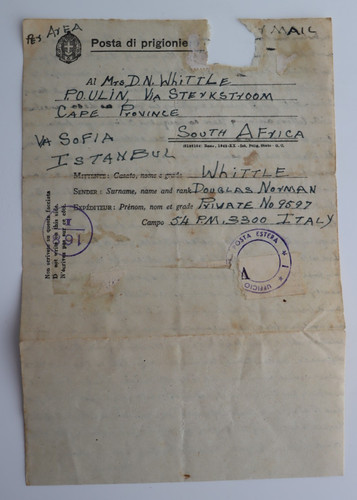 PER AREA
Posta di prigionie
Y MAIL
Al MRS D.N. WHITTLE
POULIN, VIA STEYKSTYOOM
CAPE PROVINCE
VIA SOFIA
SOUTH AFRICA
ISTANBUL
MITTENTE: Casato, nome e grado WHITTLE
SENDER: Surname, name and rank DOUGLAS NOYMAN
EXPÉDITEUR: Prénom, nom et grade PRIVATE No 9597
Campo 54 P.M. 3300 ITALY
Non scrivere su questa facciata
Do not write on this side.
N'écrivez pas sur ce côté.
POSTA ESTERA
UFFICIO
V